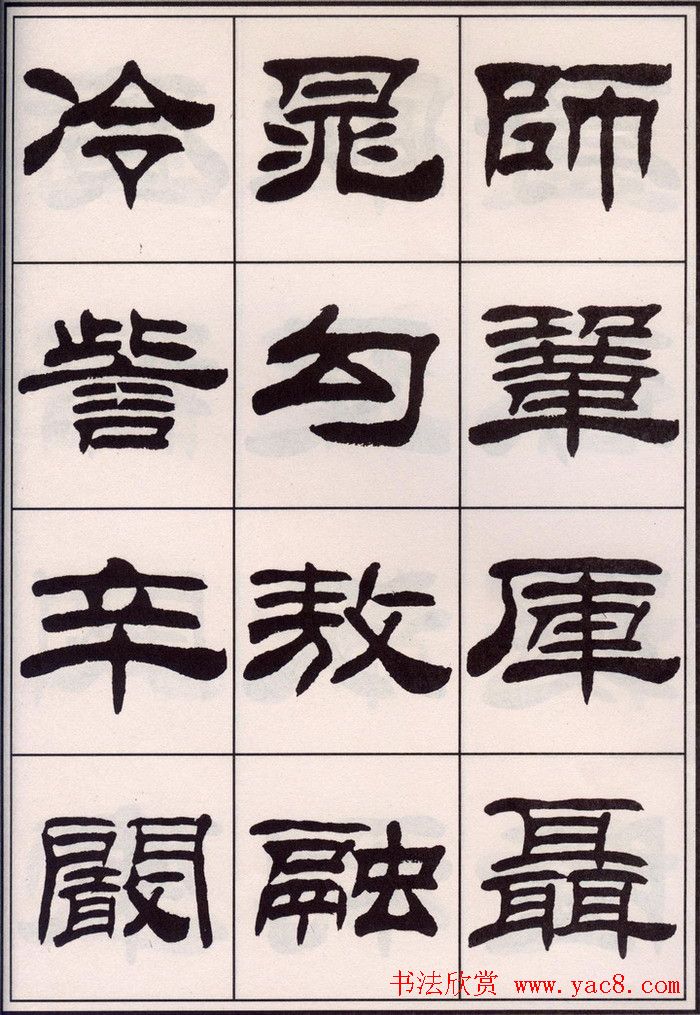 師鞏厙聶
晁勾敖融
冷訾辛闞
书法欣赏 www.yac8.com